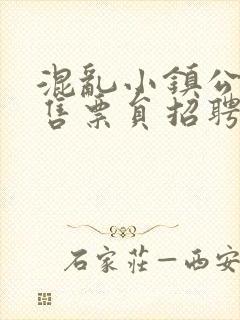 混亂小鎮公
售票員招聘
石家莊—西安